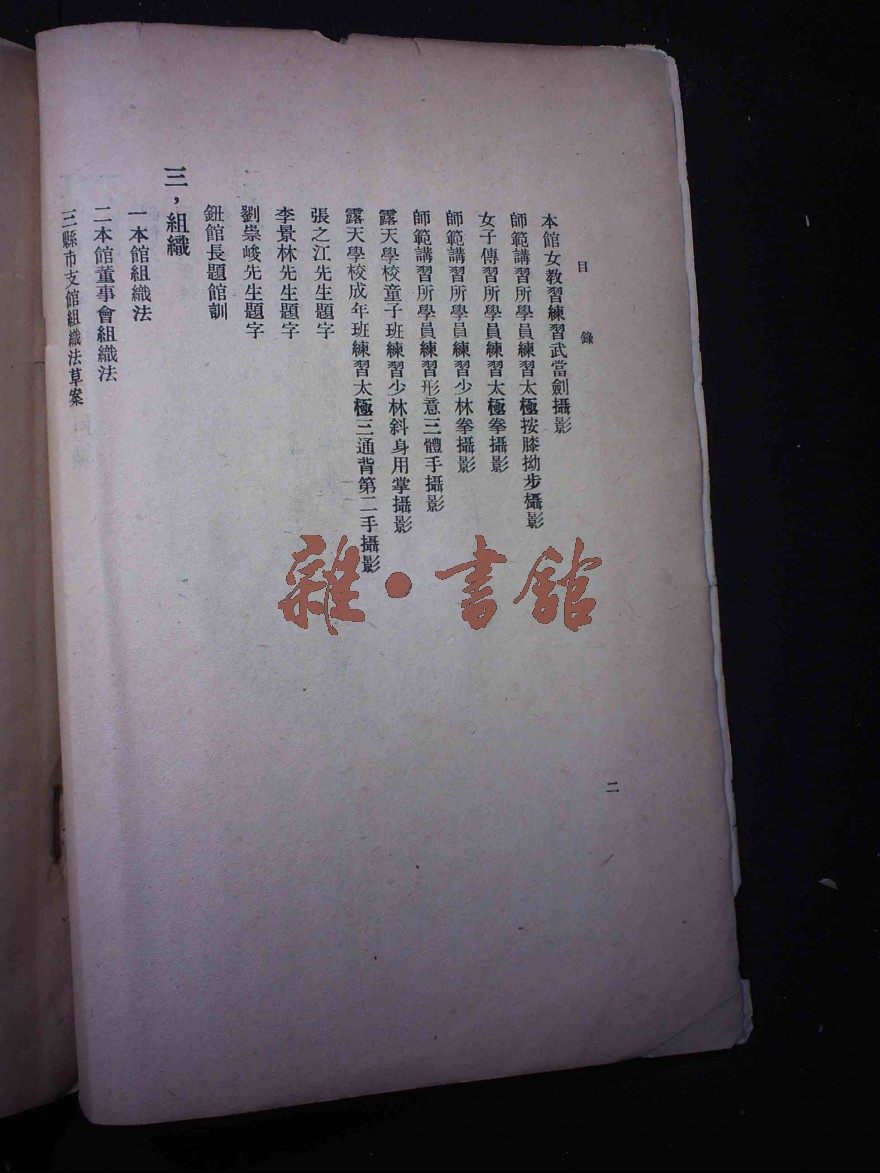 目錄
二
本館女教習練習武當劍攝影
師範講習所學員練習太極按膝拗步攝影
女子傳習所學員練習太極拳攝影
師範講習所學員練習少林拳攝影
師範講習所學員練習形意三體手攝影
露天學校童子班練習少林斜身用掌攝影
露天學校成年班練習太極三通背第二手攝影
張之江先生題字
李景林先生題字
劉崇峻先生題字
鈕館長題館訓
三，組織
一本館組織法
二本館董事會組織法
三縣市支館組織法草案
雜·書館